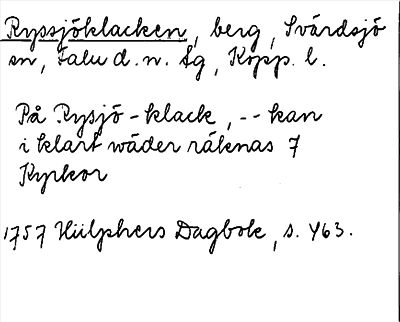 Ryssjöklacken, berg, Svärdsjö
sn, Falu d. n. tg, Kopp. l.
På Rysjö-klack, -- kan
i klart wäder räknas 7
Kyrkor
1757 Hülphers Dagbok, s. 463.